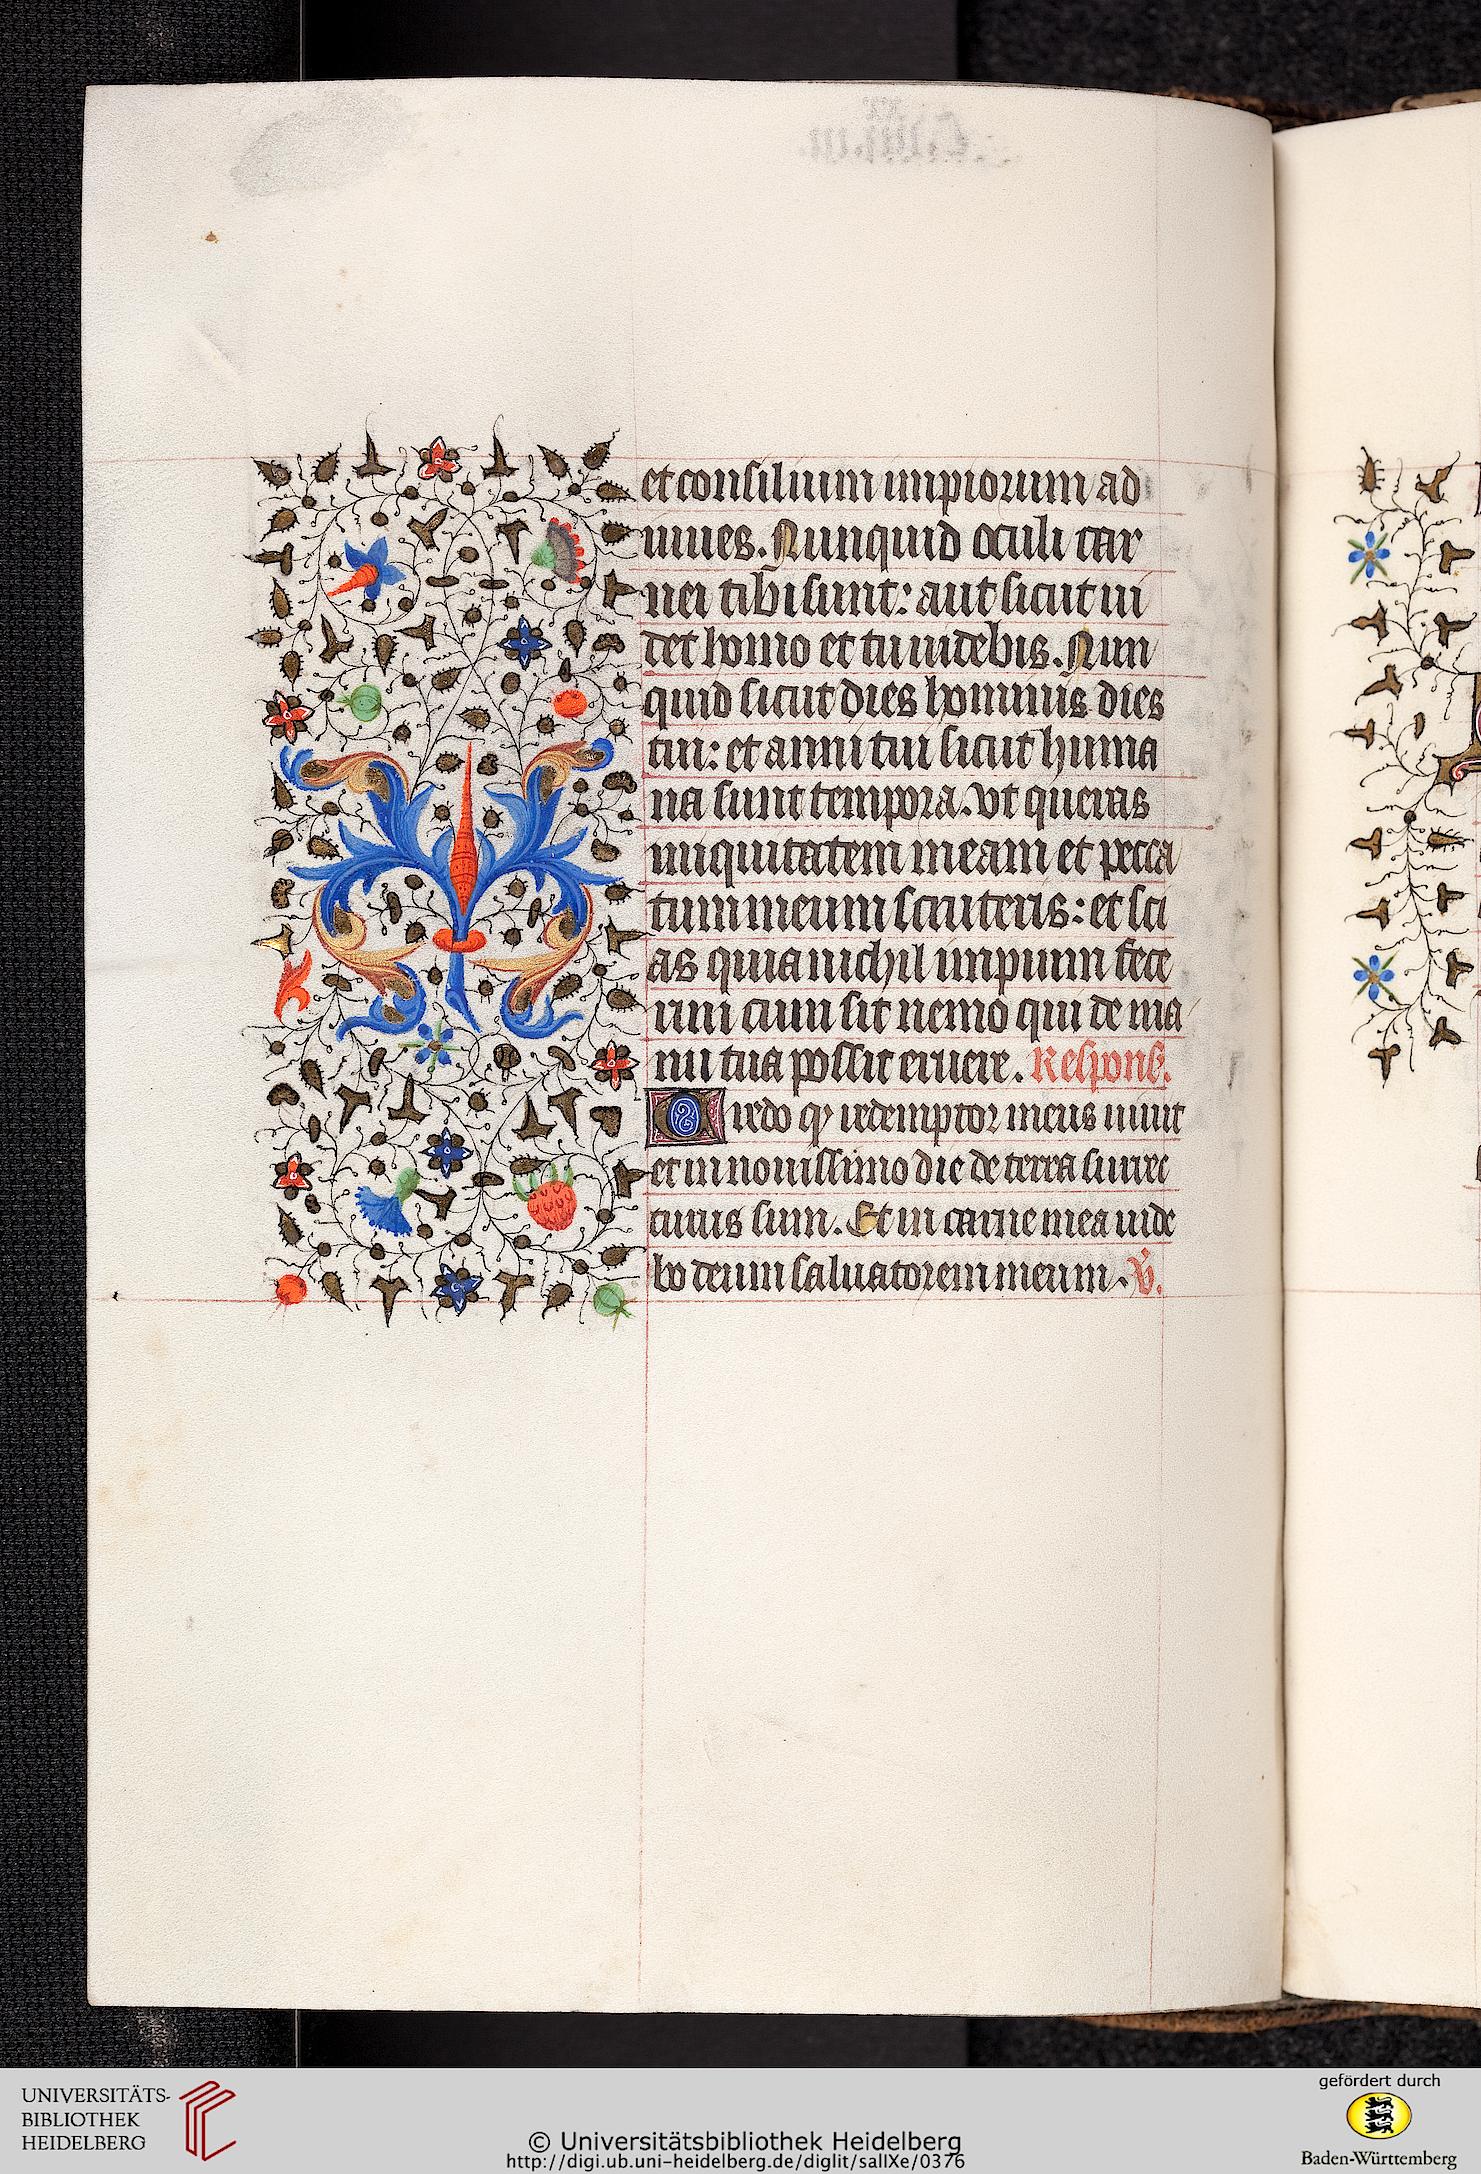 et consilium impiorum ad
iuues. Nunquid oculi car
nei tibi sunt: aut sicut ui
det homo et tu uidebis. Nun
quid sicut dies hominis dies
tui: et anni tui sicut huma
na sunt tempora. Vt queras
iniquitatem meam et pecca
tum meum scruteris: et sci
as quia nichil impium fece
rim cum sit nemo qui de ma
nu tua possit eruere. Respons.
Credo q redemptor meus uiuit
et in nouissimo die de terra surrec
turus sum. Et in carne mea uide
bo deum saluatorem meum. V.
UNIVERSITÄTS-
BIBLIOTHEK
HEIDELBERG
© Universitätsbibliothek Heidelberg
http://digi.ub.uni-heidelberg.de/diglit/salIXe/0376
gefördert durch
Baden-Württemberg